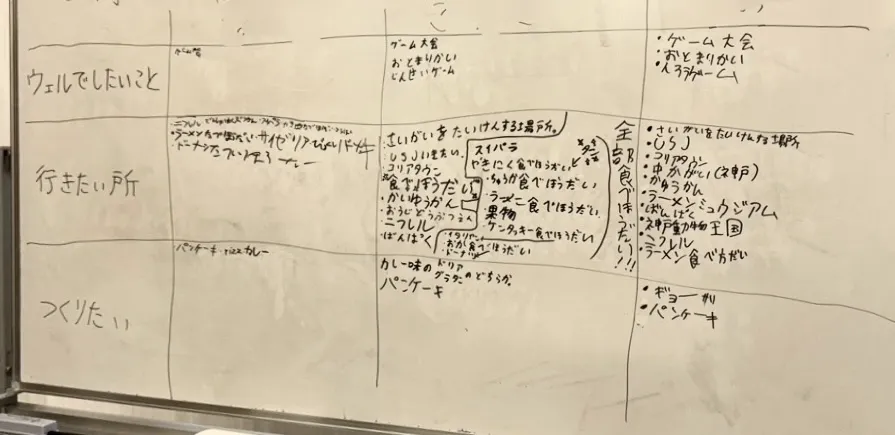 ウェルでしたいこと
ゲーム大会
おとまりかい
じんせいゲーム
・ゲーム大会
・おとまりかい
・人生ゲーム
行きたい所
・ニフレル
・ラーメン
サイゼリア
・ドーナツ
さいがいをたいけんする場所。
・USJいきたい。
・コリアタウン
・食べほうだい
・かいゆうかん
・おうじどうぶつえん
・ニフレル
・ばんぱく
スイパラ
やきにく食べほうだい
・ちゅうか食べほうだい
・ラーメン食べほうだい
果物
・ケンタッキー食べほうだい
・イタリアン
・おかし食べほうだい
・ドーナツ
全部食べほうだい!!!
・さいがいをたいけんする場所
・USJ
・コリアタウン
・中かがい(神戸)
・かいゆうかん
・ラーメンミュウジアム
・ばんぱく
・神戸動物王国
・ニフレル
・ラーメン食べ方だい
つくりたい
パンケーキ
カレー
カレー味のドリア
グラタンのどちらか。
パンケーキ
・ギョーザ
・パンケーキ